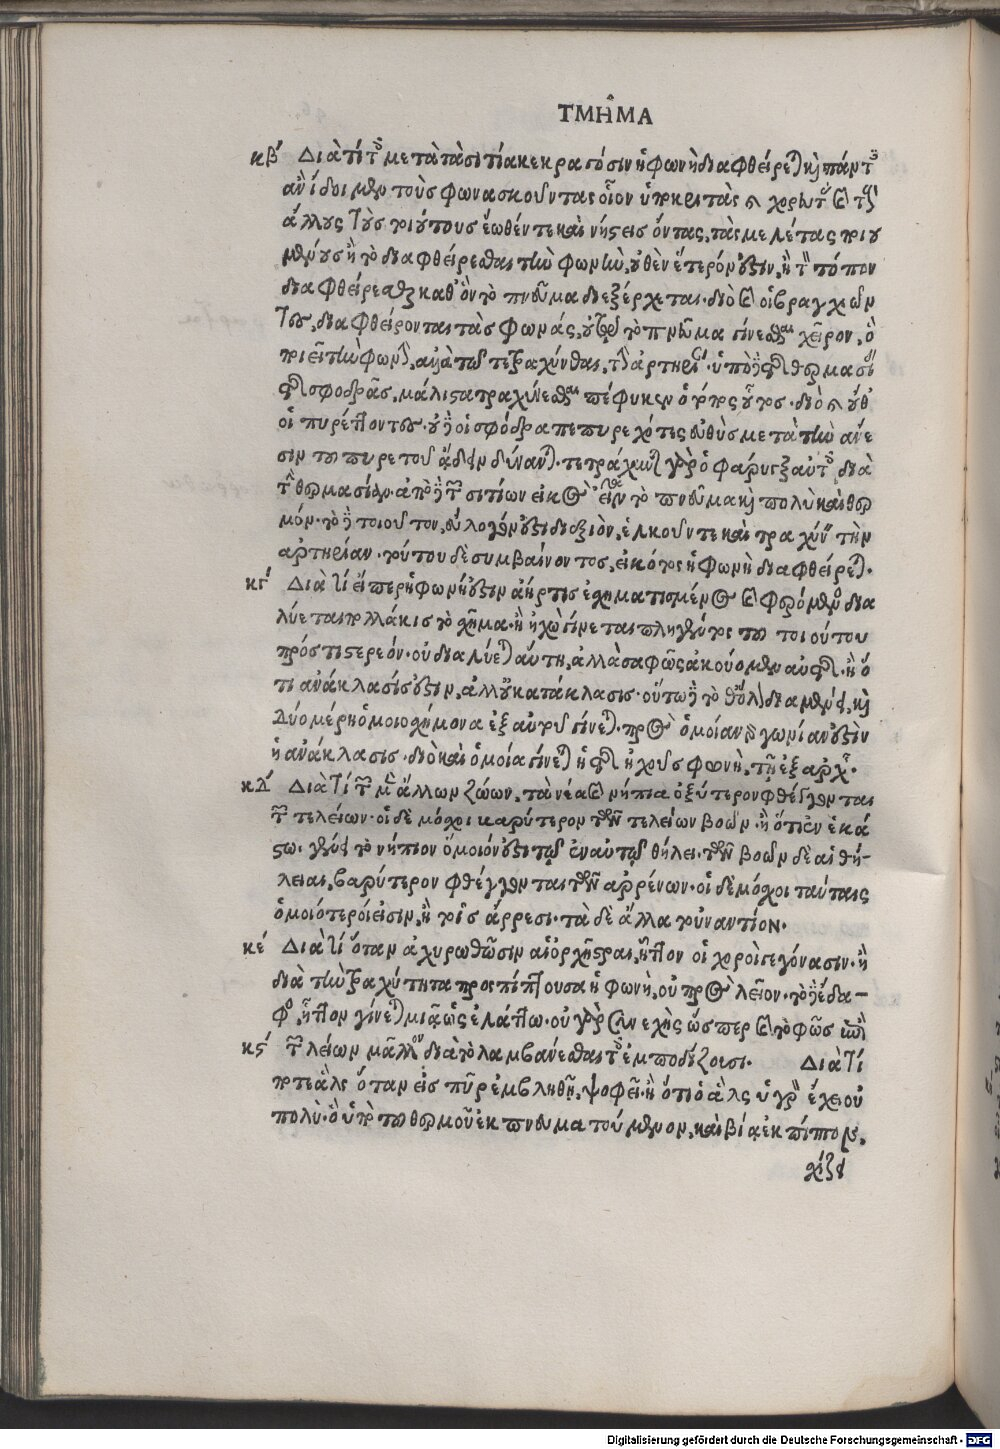 ΤΜΗ͂ΜΑ
κβʹ Διὰ τί τοῖς μετὰ τὰ σιτία κεκραγόσιν ἡ φωνὴ διαφθείρεται καὶ πάντας
ἂν ἴδοι μεν τοὺς φωνασκοῦντας οἷον ὑποκριτὰς καὶ χορευτὰς καὶ τοὺς
ἄλλους τοὺς τοιούτους ἕωθέν τε καὶ νήστεις ὄντας, τὰς μελέτας ποιου
μένους ἢ τὸ διαφθείρεσθαι τὴν φωνὴν, οὐθὲν ἕτερόν ἐστιν, ἢ τὸν τόπον
διαφθείρεσθαι καθ' ὃν τὸ πνεῦμα διεξέρχεται· διὸ καὶ οἱ βραγχιῶν
τες, διαφθείρονται τὰς φωνάς, οὐ τῷ τὸ πνεῦμα γίνεσθαι χεῖρον, ὃ
ποιεῖ τὴν φωνὴν, ἀλλὰ τῷ τετραχύνθαι, τὴν ἀρτηρίαν· ὑπὸ δὲ τῆς θερμασίας
τῆς σφοδρᾶς, μάλιστα τραχύνεσθαι πέφυκεν ὁ τόπος οὗτος· διὸ καὶ οὔθ'
οἱ πυρέττοντες· οὔθ' οἱ σφόδρα πεπυρεχότες εὐθὺς μετὰ τὴν ἄνε
σιν τοῦ πυρετοῦ ᾄδειν δύνανται· τετράχυνται γὰρ ὁ φάρυγξ αὐτοῖς διὰ
τὴν θερμασίαν· ἀπὸ δὲ τῶν σιτίων εἰκὸς εἶναι τὸ πνεῦμα καὶ πολὺ καὶ θερ
μόν· τὸ δὲ τοιοῦτον, εὔλογόν ἐστι διεξιὸν, ἑλκοῦν τε καὶ τραχύνειν τὴν
ἀρτηρίαν· τούτου δὲ συμβαίνοντος, εἰκότως ἡ φωνὴ διαφθείρεται.
κγʹ Διὰ τί εἴπερ ἡ φωνή ἐστιν ἀήρ τις ἐσχηματισμένος καὶ φερόμενος δια
λύεται πολλάκις τὸ σχῆμα· ἡ ἠχὼ γίνεται πληγέντος τοῦ τοιούτου
πρός τι στερεόν· οὐ διαλύεται αὕτη, ἀλλὰ σαφῶς ἀκούομεν αὐτῆς· ἢ ὅ
τι ἀνάκλασίς ἐστιν, ἀλλ' οὐ κατάκλασις· οὕτω δὲ τὸ ὅλον διαμένει, καὶ
δύο μέρη ὁμοιοσχήμονα ἐξ αὐτοῦ γίνεται· πρὸς ὁμοίαν γὰρ γωνίαν ἐστὶν
ἡ ἀνάκλασις· διὸ καὶ ὁμοία γίνεται ἡ τῆς ἠχοῦς φωνὴ, τῇ ἐξ ἀρχῆς.
κδʹ Διὰ τί τῶν μὲν ἄλλων ζώων, τὰ νέα καὶ νήπια ὀξύτερον φθέγγονται
τῶν τελείων· οἱ δὲ μόσχοι βαρύτερον τῶν τελείων βοῶν· ἢ ὅτι ἐν ἑκά
στῳ γένει τὸ νήπιον ὅμοιόν ἐστι τῷ ἐν αὐτῷ θήλει· τῶν βοῶν δὲ αἱ θή-
λειαι, βαρύτερον φθέγγονται τῶν ἀρρένων· οἱ δὲ μόσχοι ταύταις
ὁμοιότεροί εἰσιν, ἢ τοῖς ἄρρεσι· τὰ δὲ ἄλλα τοὐναντίον.
κεʹ Διὰ τί ὅταν ἀχυρωθῶσιν αἱ ὀρχῆστραι, ἧττον οἱ χοροὶ γεγόνασιν· ἢ
διὰ τὴν τραχύτητα προσπίπτουσα ἡ φωνὴ, οὐ πρὸς λεῖον· τὸ δὲ ἔδα-
φος, ἧττον γίνεται μία, ὡς ἐλάττω· οὐ γὰρ συνεχὴς ὥσπερ καὶ τὸ φῶς ἐπὶ
κϛʹ τῶν λείων μᾶλλον διὰ τὸ λαμβάνεσθαι τοῖς ἐμποδίζουσι. Διὰ τί
ποτε ἅλς ὅταν εἰς πῦρ ἐμβληθῇ, ψοφεῖ· ἢ ὅτι ὁ ἅλς ὑγρὸν ἔχει οὐ
πολὺ· ὃ ὑπὸ τοῦ θερμοῦ ἐκπνευματούμενον, καὶ βίᾳ ἐκπίπτον,
σχίζει